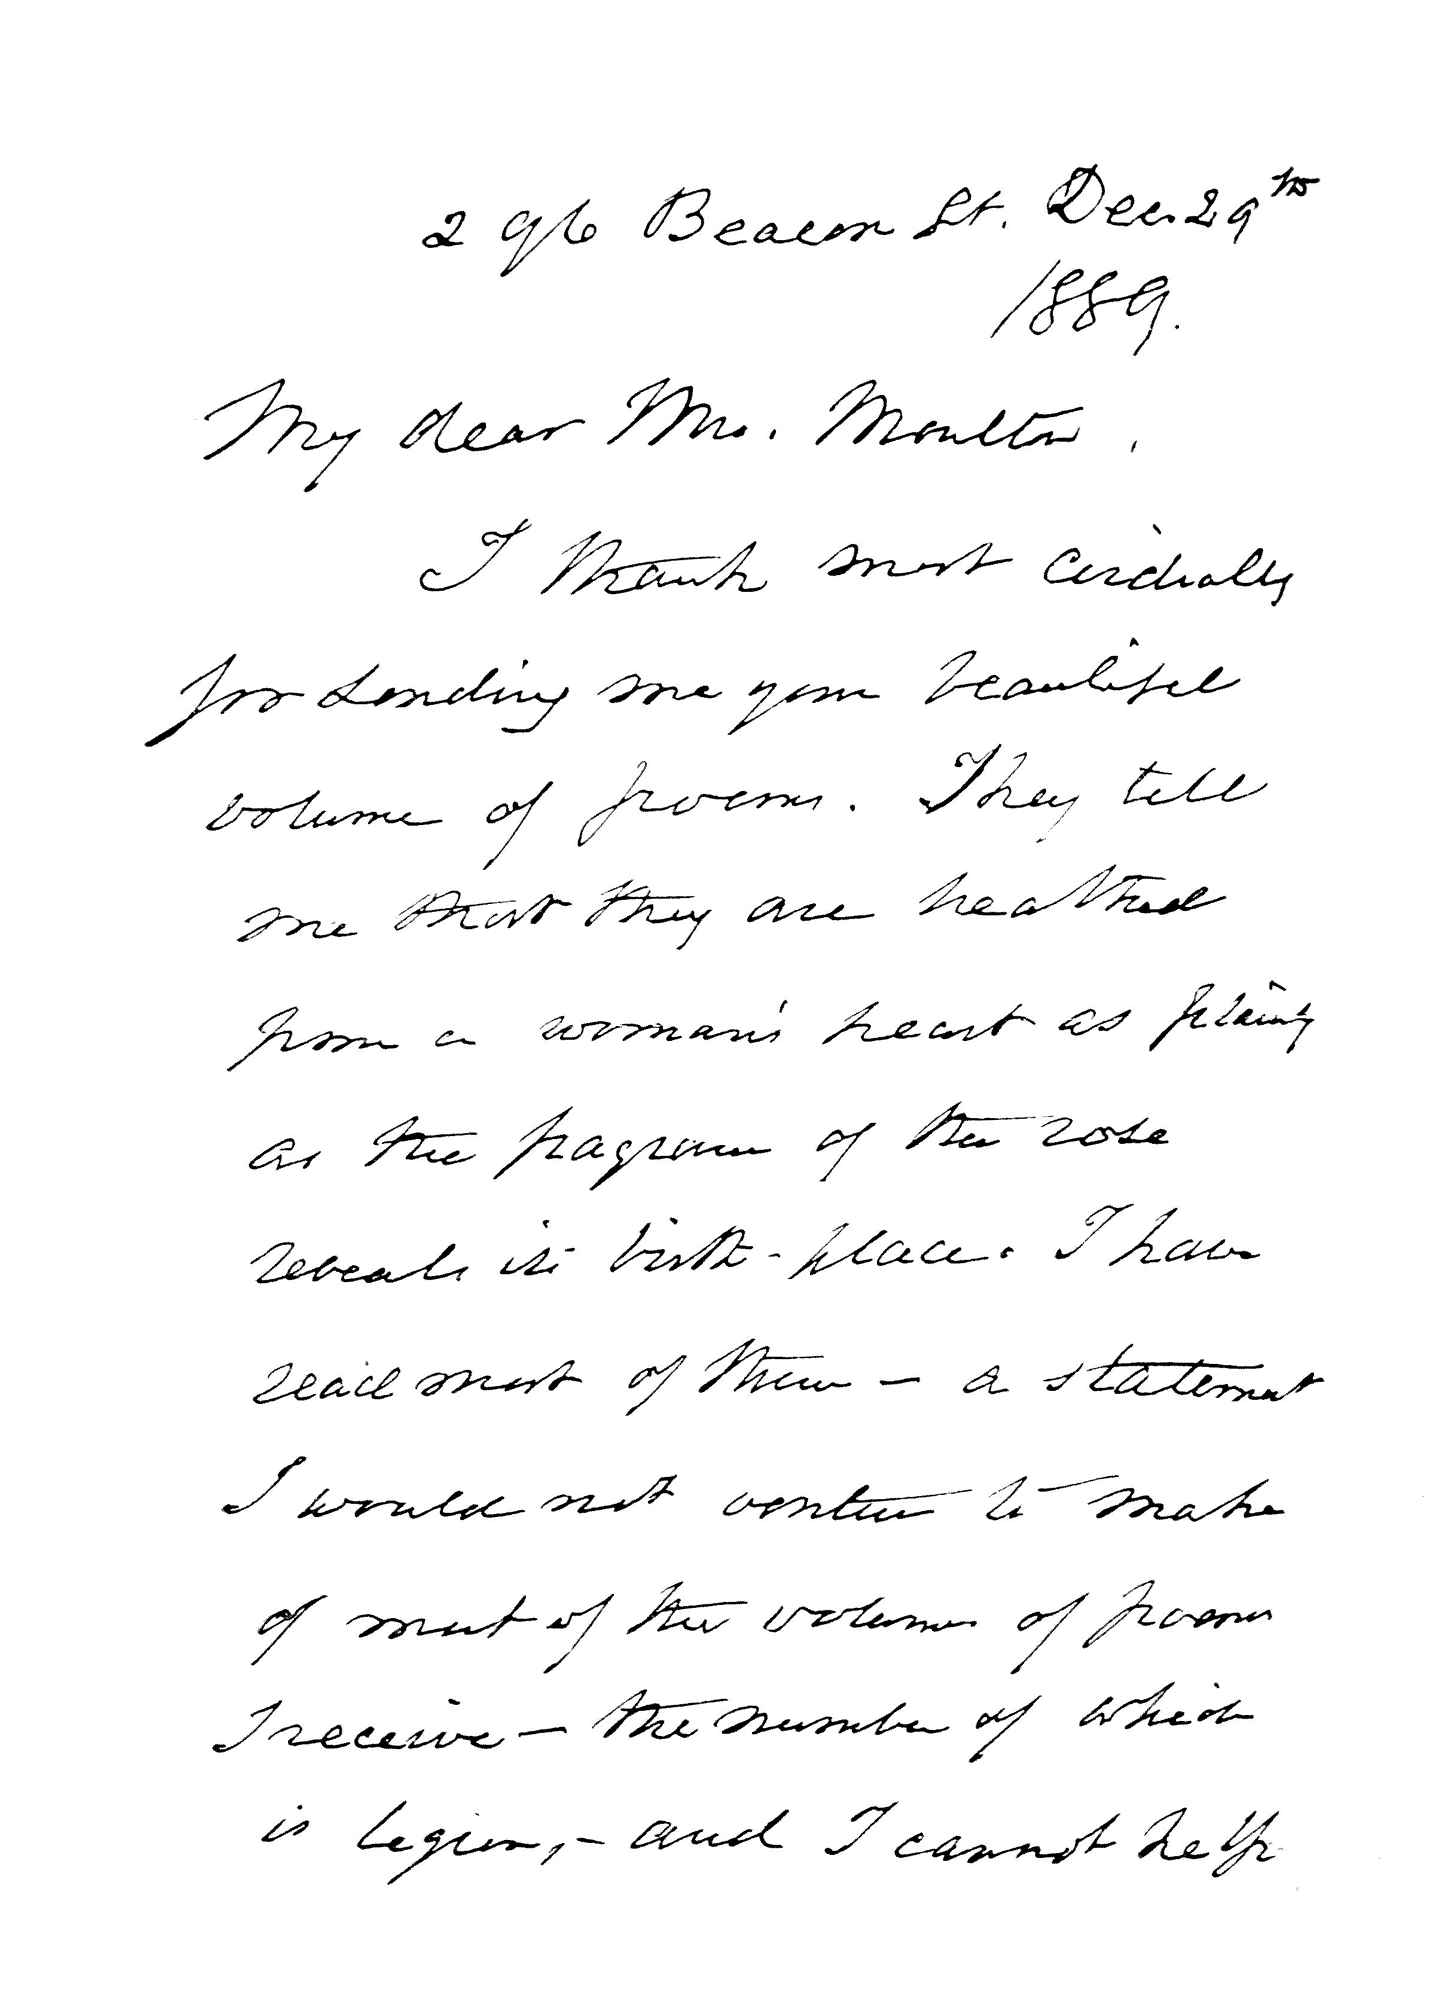 296 Beacon St. Dec. 29th
1889.
My dear Mrs. Moulton,
I thank most cordially
for sending me your beautiful
volume of poems. They tell
me that they are breathed
from a woman's heart as plainly
as the fragrance of the rose
reveals its birth-place. I have
read most of them — a statement
I would not venture to make
of most of the volumes of poems
I receive — the number of which
is legion, — and I cannot help